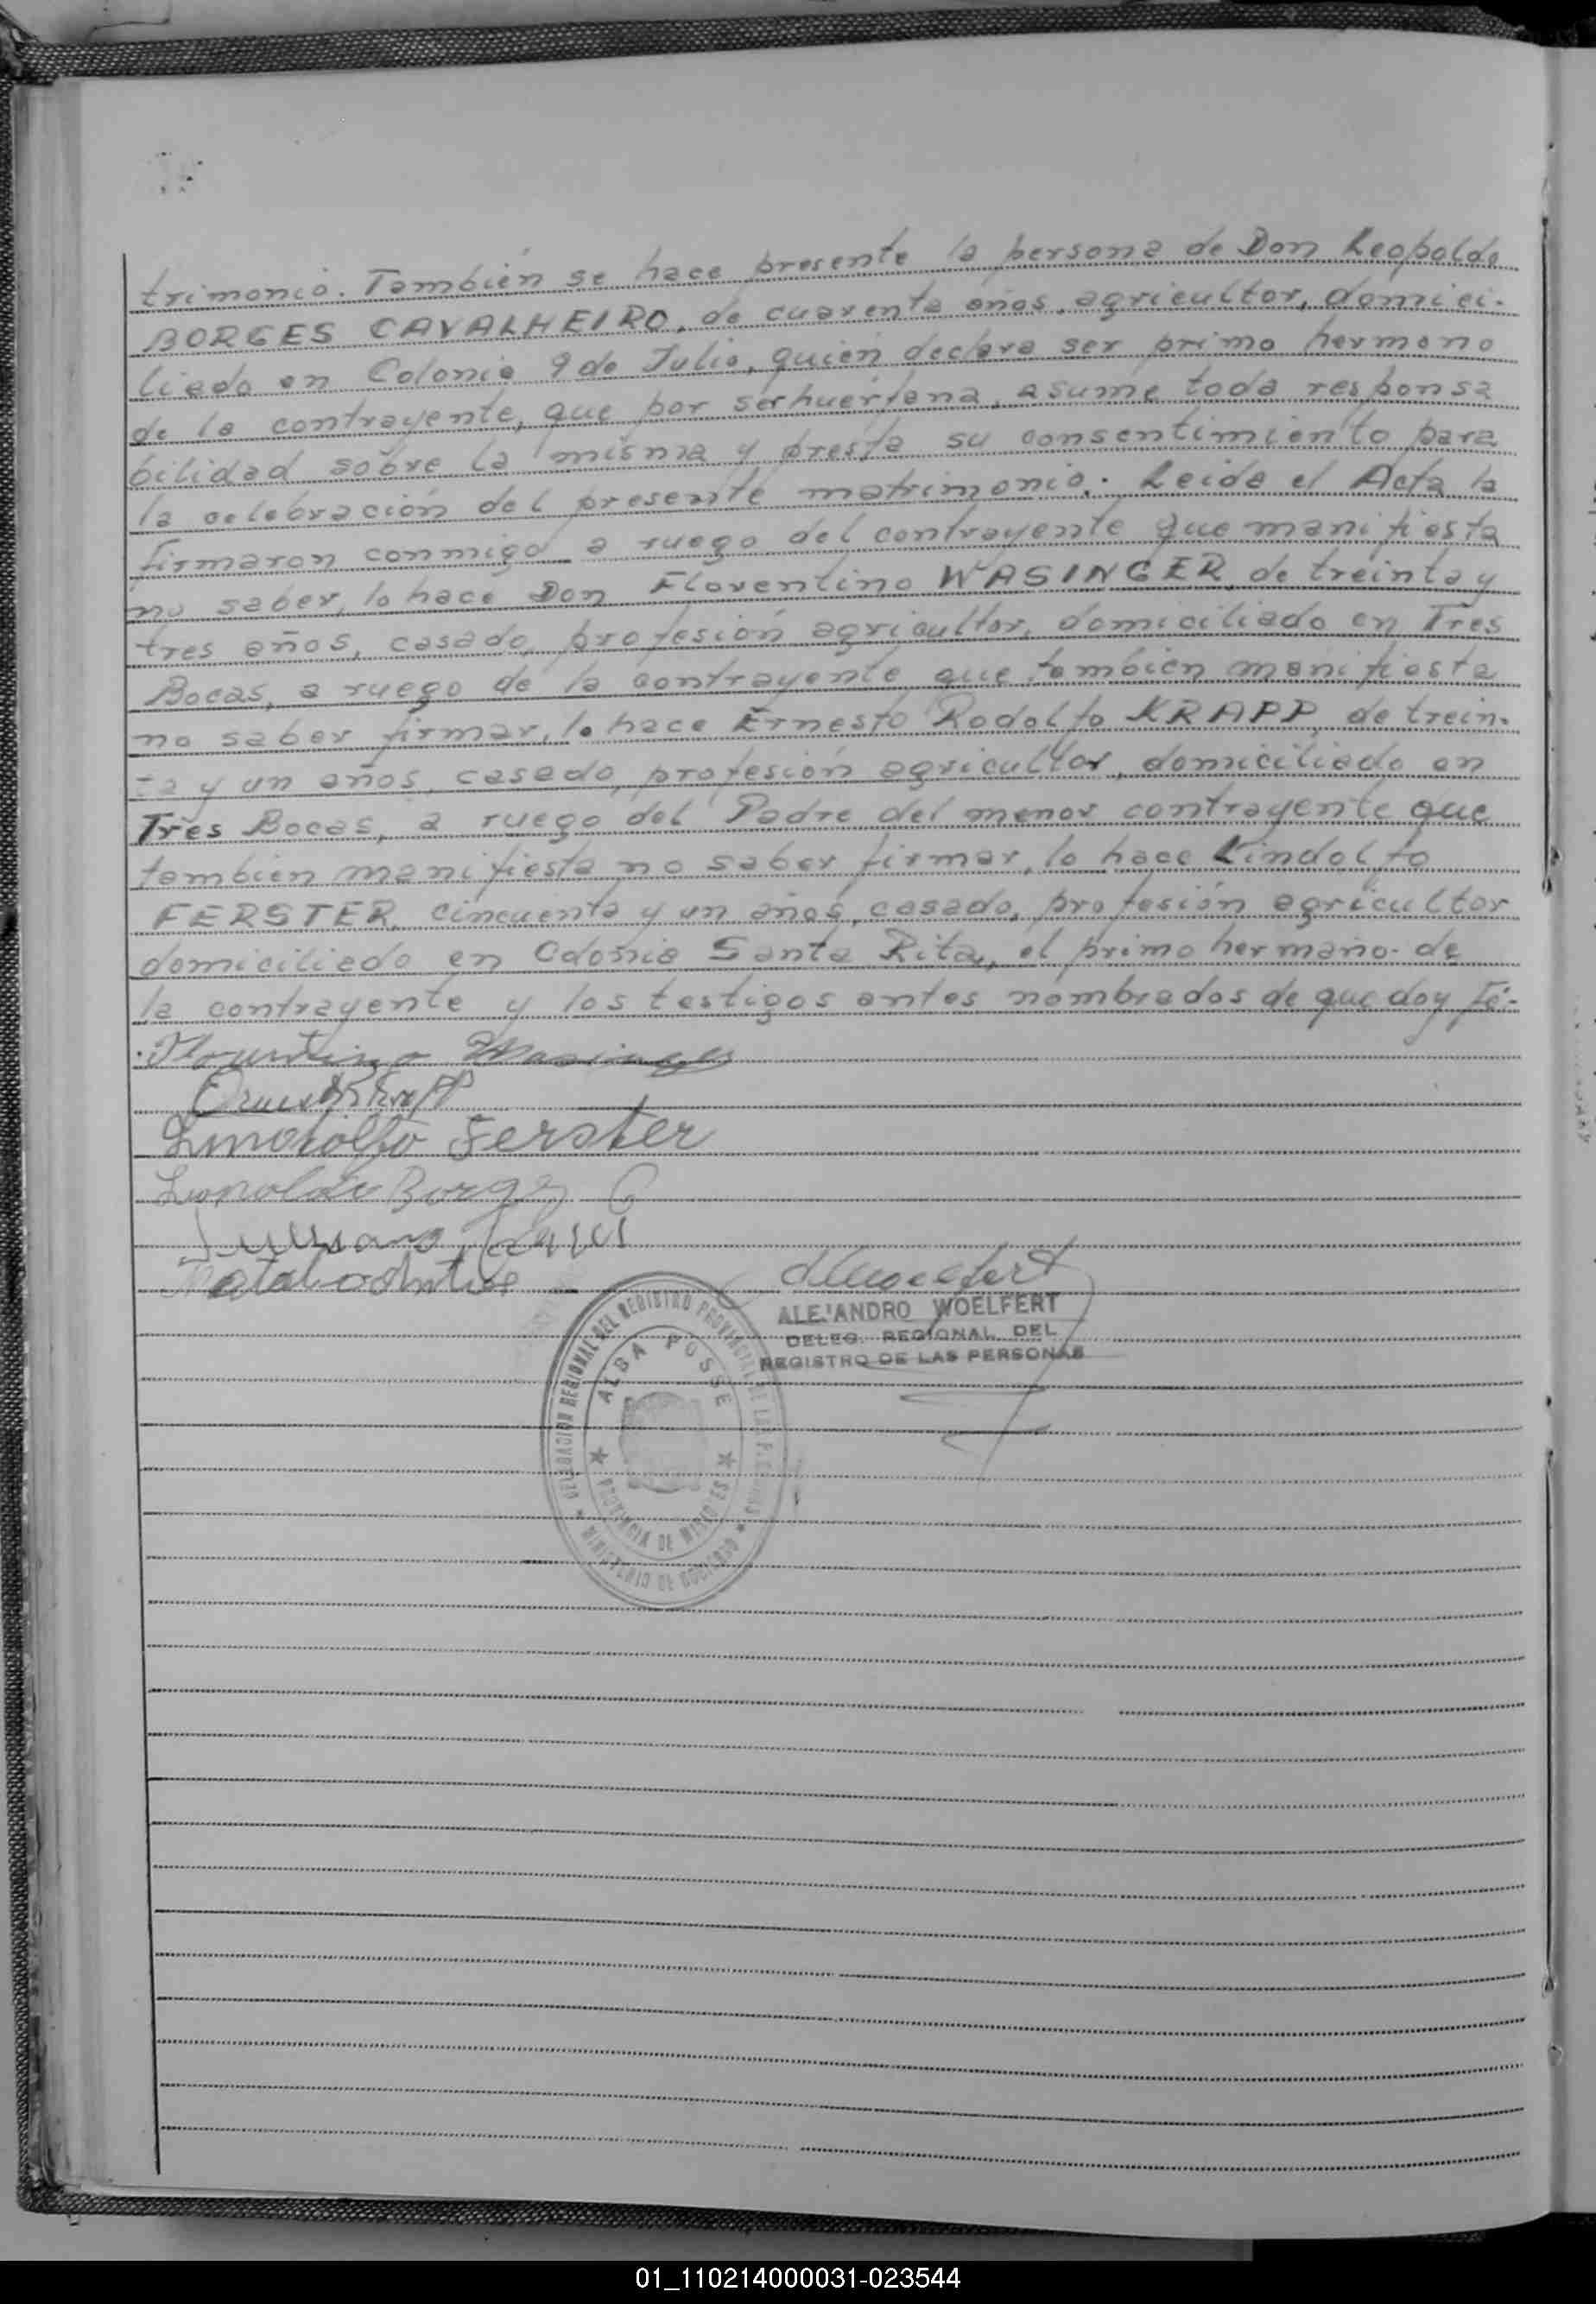 trimonio. También se hace presente la persona de Don Leopoldo
BORGES CAVALHEIRO, de cuarenta años, agricultor, domici-
liado en Colonia 9 de Julio, quien declara ser primo hermano
de la contrayente, que por ser huérfana, asume toda responsa
bilidad sobre la misma y presta su consentimiento para
la celebración del presente matrimonio. Leida el Acta la
firmaron conmigo a ruego del contrayente que manifiesta
no saber, lo hace Don Florentino WASINGER, de treinta y
tres años, casado, profesión agricultor, domiciliado en Tres
Bocas, a ruego de la contrayente que tambien manifiesta
no saber firmar, lo hace Ernesto Rodolfo KRAPP, de trein-
ta y un años, casado, profesión agricultor, domiciliado en
Tres Bocas, a ruego del Padre del menor contrayente que
tambien manifiesta no saber firmar, lo hace Lindolfo
FERSTER, cincuenta y un años, casado, profesión agricultor
domiciliado en Colonia Santa Rita, el primo hermano de
la contrayente y los testigos antes nombrados de que doy Fé.-
Florentino Wasinger
Ernesto R Krapp
Lindolfo Ferster
Leopoldo Borges C
AWoelfert
ALEJANDRO WOELFERT
DELEG. REGIONAL DEL
REGISTRO DE LAS PERSONAS
DELEGACION REGIONAL DEL REGISTRO PROVINCIAL DE LAS PERSONAS
ALBA POSSE
PROVINCIA DE MISIONES
MINISTERIO DE GOBIERNO
01_110214000031-023544